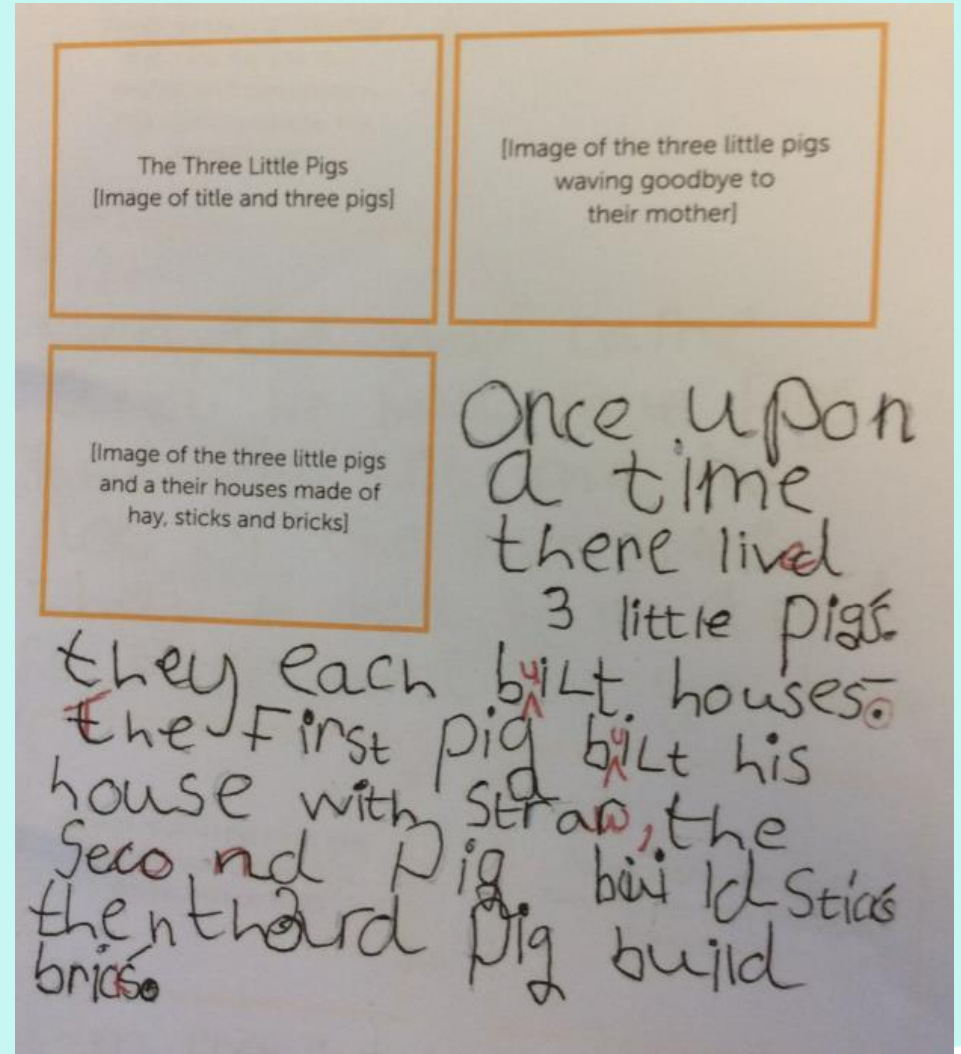 The Three Little Pigs
[Image of title and three pigs]
[Image of the three little pigs
waving goodbye to
their mother]
[Image of the three little pigs
and a their houses made of
hay, sticks and bricks]
Once upon
a time
there lived
3 little pigs.
they each built houses.
The First pig built his
house with straw, the
Second pig build Sticks
then thourd pig build
bricks.